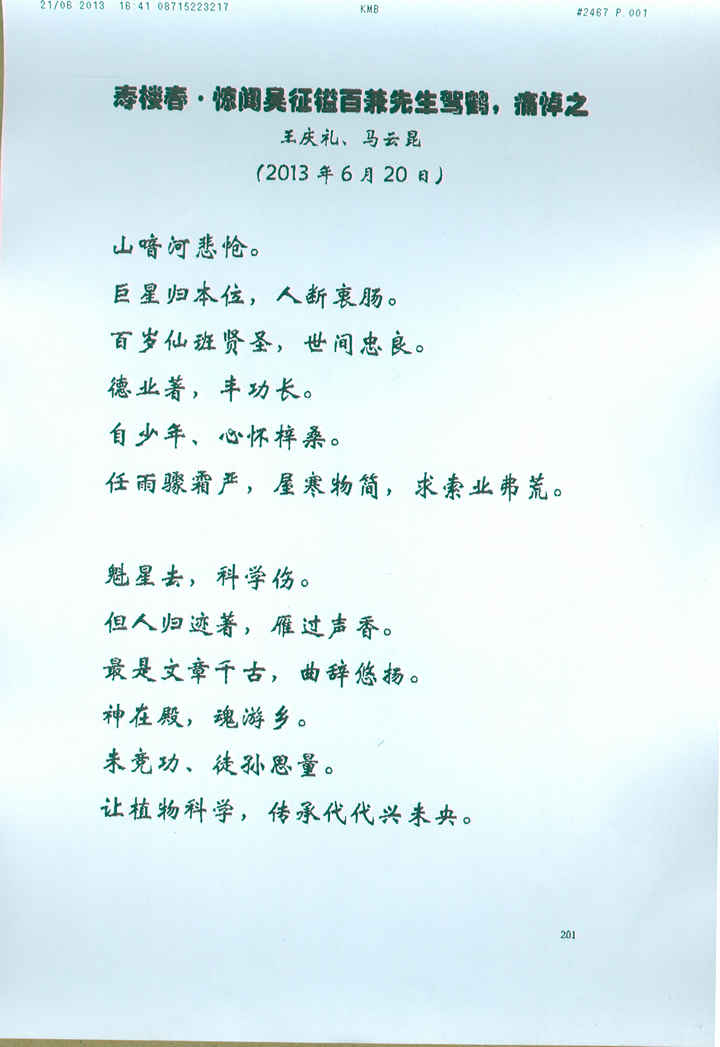 21/06 2013 16:41 08715223217 KMB #2467 P.001
寿楼春·惊闻吴征镒百兼先生驾鹤，痛悼之
王庆礼、马云昆
(2013 年 6 月 20 日)
山喑河悲怆。
巨星归本位，人断衷肠。
百岁仙班贤圣，世间忠良。
德业著，丰功长。
自少年、心怀梓桑。
任雨骤霜严，屋寒物简，求索业弗荒。
魁星去，科学伤。
但人归迹著，雁过声香。
最是文章千古，曲辞悠扬。
神在殿，魂游乡。
未竞功、徒孙思量。
让植物科学，传承代代兴未央。
201